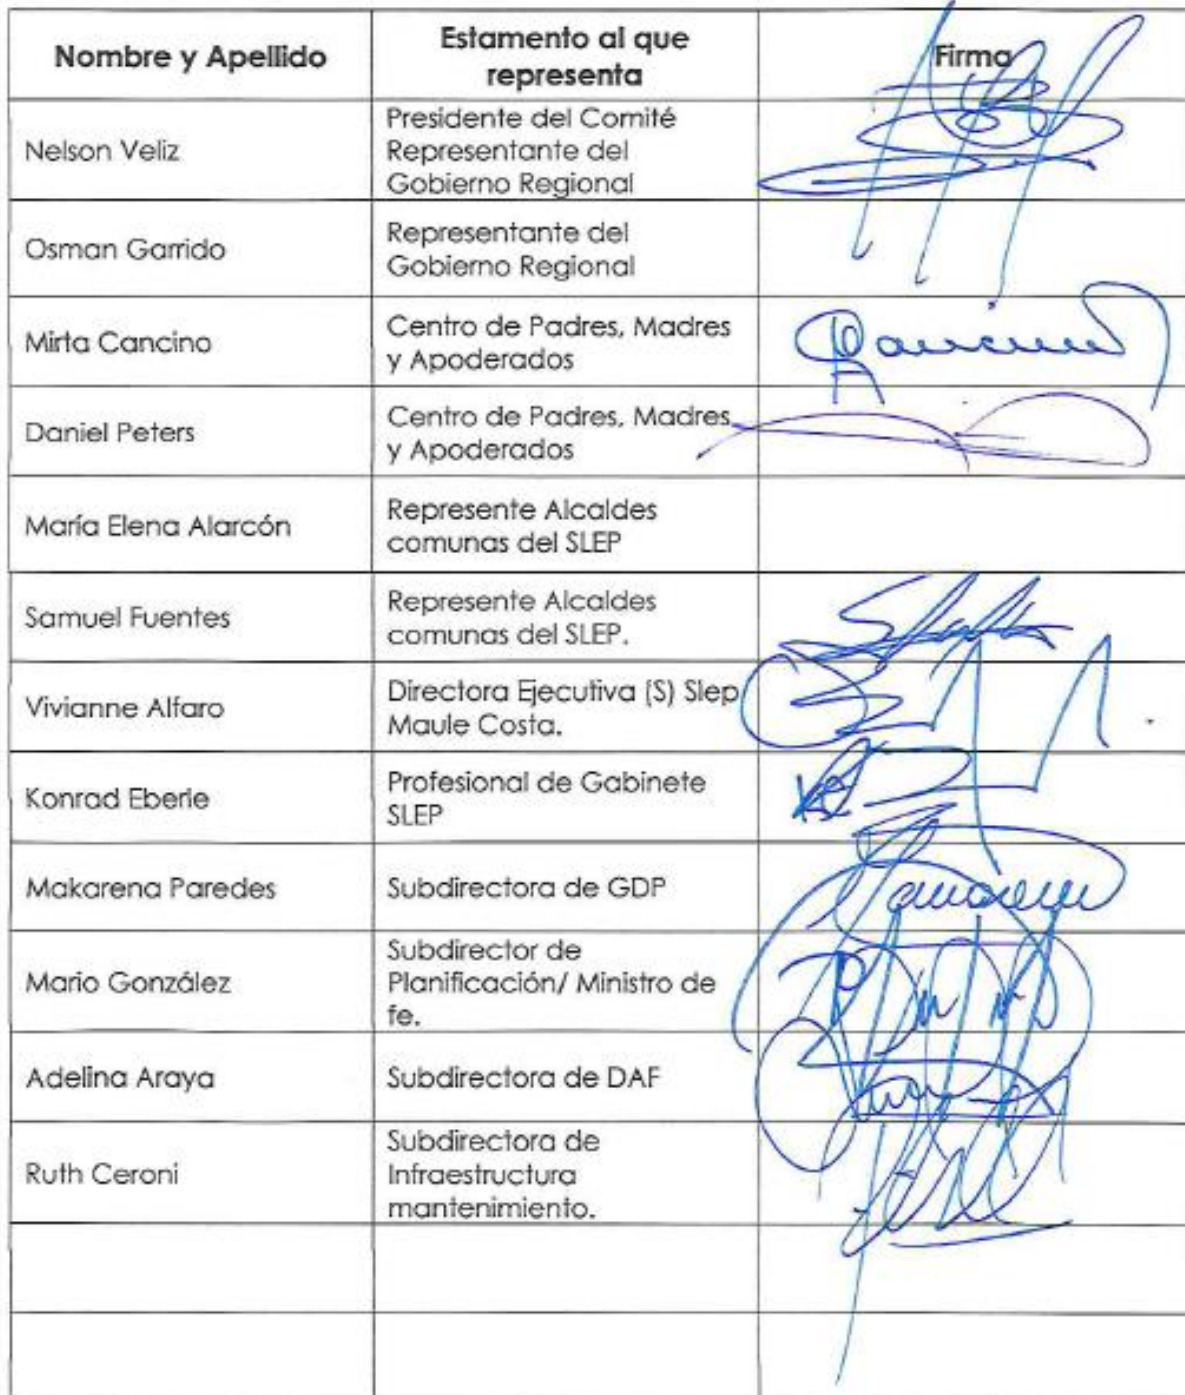 Nombre y Apellido
Estamento al que
representa
Firma
Nelson Veliz
Presidente del Comité
Representante del
Gobierno Regional
Osman Garrido
Representante del
Gobierno Regional
Mirta Cancino
Centro de Padres, Madres
y Apoderados
Daniel Peters
Centro de Padres, Madres
y Apoderados
María Elena Alarcón
Represente Alcaldes
comunas del SLEP
Samuel Fuentes
Represente Alcaldes
comunas del SLEP.
Vivianne Alfaro
Directora Ejecutiva (S) Slep
Maule Costa.
Konrad Eberle
Profesional de Gabinete
SLEP
Makarena Paredes
Subdirectora de GDP
Mario González
Subdirector de
Planificación/ Ministro de
fe.
Adelina Araya
Subdirectora de DAF
Ruth Ceroni
Subdirectora de
Infraestructura
mantenimiento.